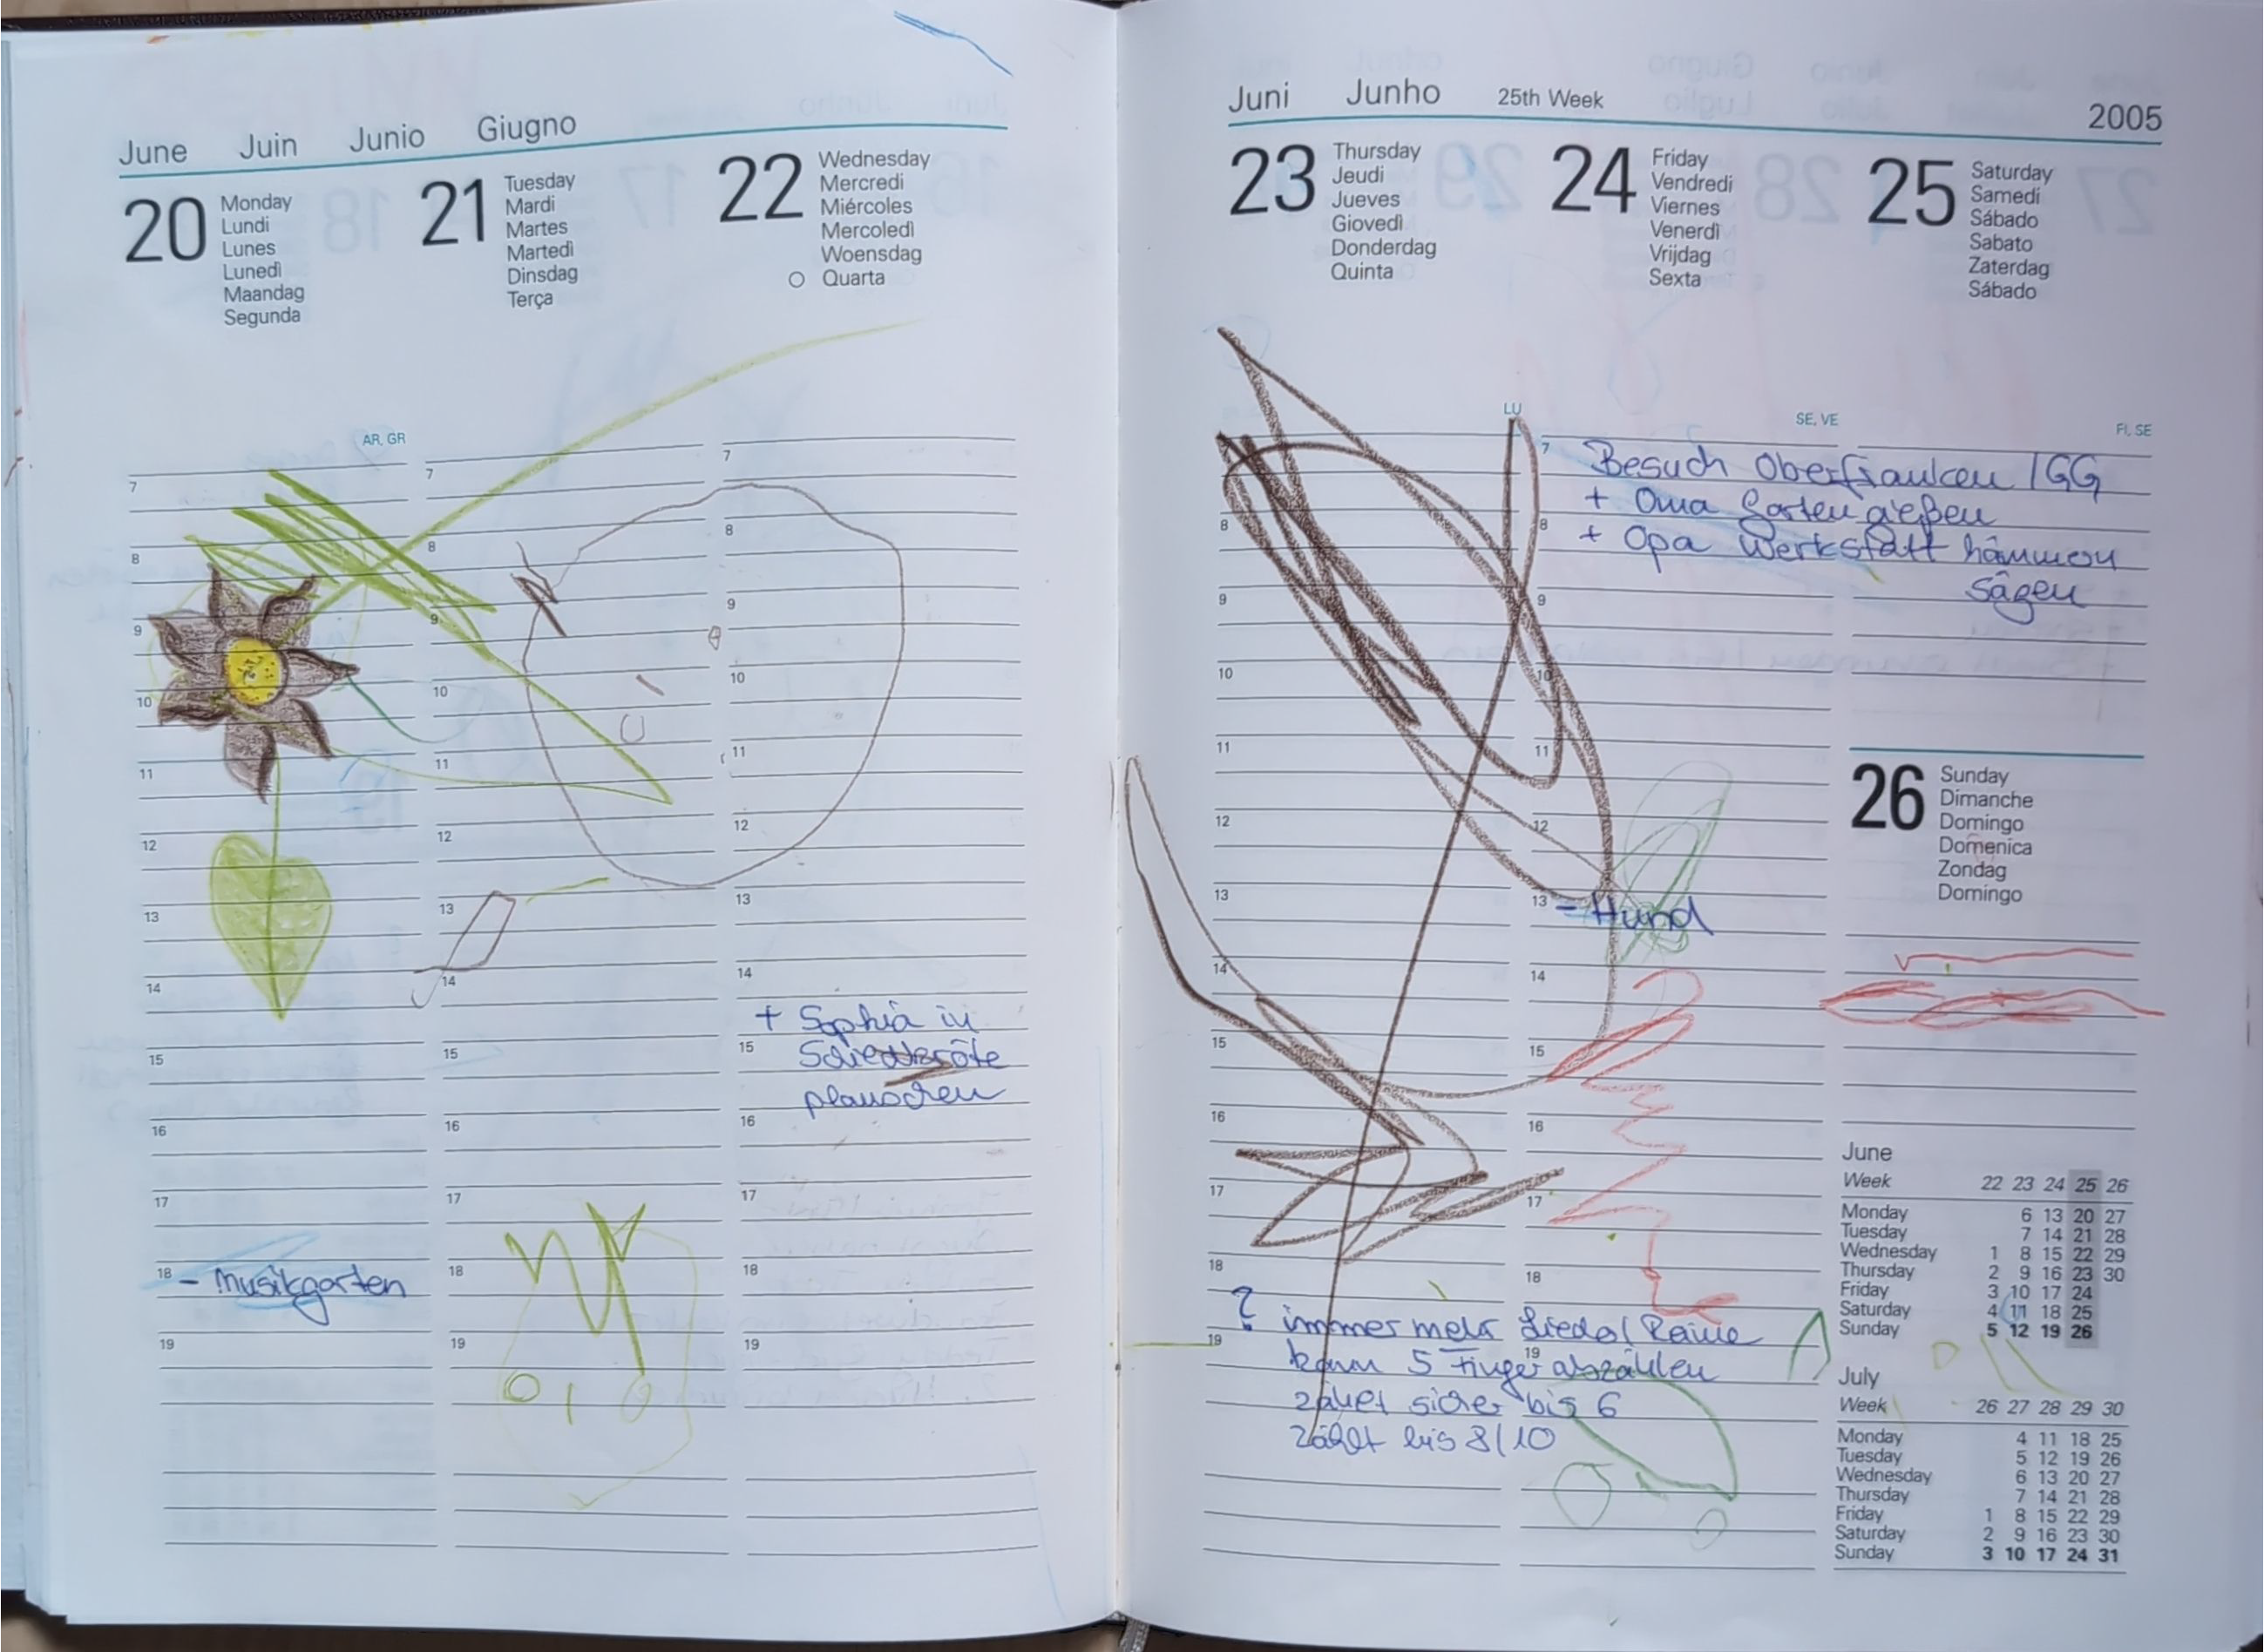 June Juin Junio Giugno
20 Monday
Lundi
Lunes
Lunedì
Maandag
Segunda
21 Tuesday
Mardi
Martes
Martedì
Dinsdag
Terça
22 Wednesday
Mercredi
Miércoles
Mercoledì
Woensdag
Quarta
AR, GR
7
8
9
10
11
12
13
14
15
16
17
18 - Musikgarten
19
7
8
9
10
11
12
13
14
15
16
17
18
19
7
8
9
10
11
12
13
14
+ Sophia in
15
planschen
16
17
18
19
Juni Junho 25th Week 2005
23 Thursday
Jeudi
Jueves
Giovedì
Donderdag
Quinta
24 Friday
Vendredi
Viernes
Venerdì
Vrijdag
Sexta
25 Saturday
Samedi
Sábado
Sabato
Zaterdag
Sábado
LU
SE, VE
FI, SE
8
9
10
11
12
13
14
15
16
17
18
? immer mehr Lieder / Reime
19 kann 5 Finger abzählen
zählt sicher bis 6
zählt bis 8/10
7 Besuch Oberfranken / GG
+ Oma Garten gießen
8 + Opa Werkstatt hämmern
sägen
9
10
11
12
13 - Hund
14
15
16
17
18
19
26 Sunday
Dimanche
Domingo
Domenica
Zondag
Domingo
June
Week 22 23 24 25 26
Monday 6 13 20 27
Tuesday 7 14 21 28
Wednesday 1 8 15 22 29
Thursday 2 9 16 23 30
Friday 3 10 17 24
Saturday 4 11 18 25
Sunday 5 12 19 26
July
Week 26 27 28 29 30
Monday 4 11 18 25
Tuesday 5 12 19 26
Wednesday 6 13 20 27
Thursday 7 14 21 28
Friday 1 8 15 22 29
Saturday 2 9 16 23 30
Sunday 3 10 17 24 31